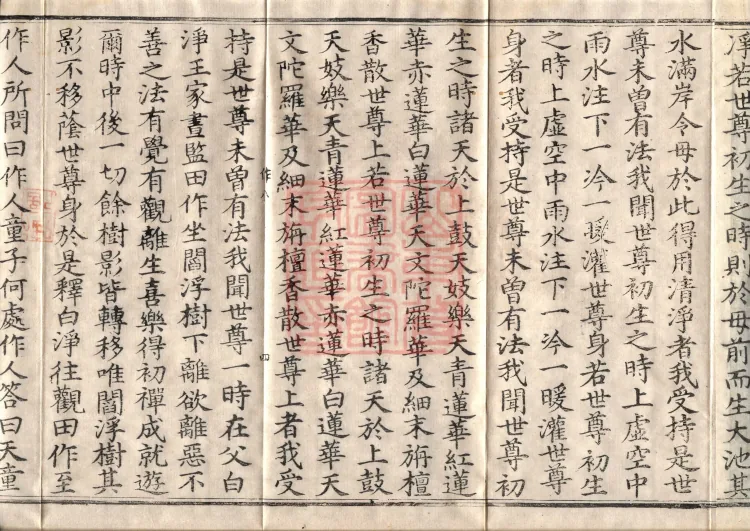 淨若世尊初生之時則於母前而生大池其
水滿岸令母於此得用清淨者我受持是世
尊未曾有法我聞世尊初生之時上虛空中
雨水注下一冷一煖灌世尊身若世尊初生
之時上虛空中雨水注下一冷一暖灌世尊
身者我受持是世尊未曾有法我聞世尊初
生之時諸天於上鼓天妓樂天青蓮華紅蓮
華赤蓮華白蓮華天文陀羅華及細末旃檀
香散世尊上若世尊初生之時諸天於上鼓
天妓樂天青蓮華紅蓮華赤蓮華白蓮華天
文陀羅華及細末旃檀香散世尊上者我受
作八 四
持是世尊未曾有法我聞世尊一時在父白
淨王家晝監田作坐閻浮樹下離欲離惡不
善之法有覺有觀離生喜樂得初禪成就遊
爾時中後一切餘樹影皆轉移唯閻浮樹其
影不移蔭世尊身於是釋白淨往觀田作至
作人所問曰作人童子何處作人答曰天童